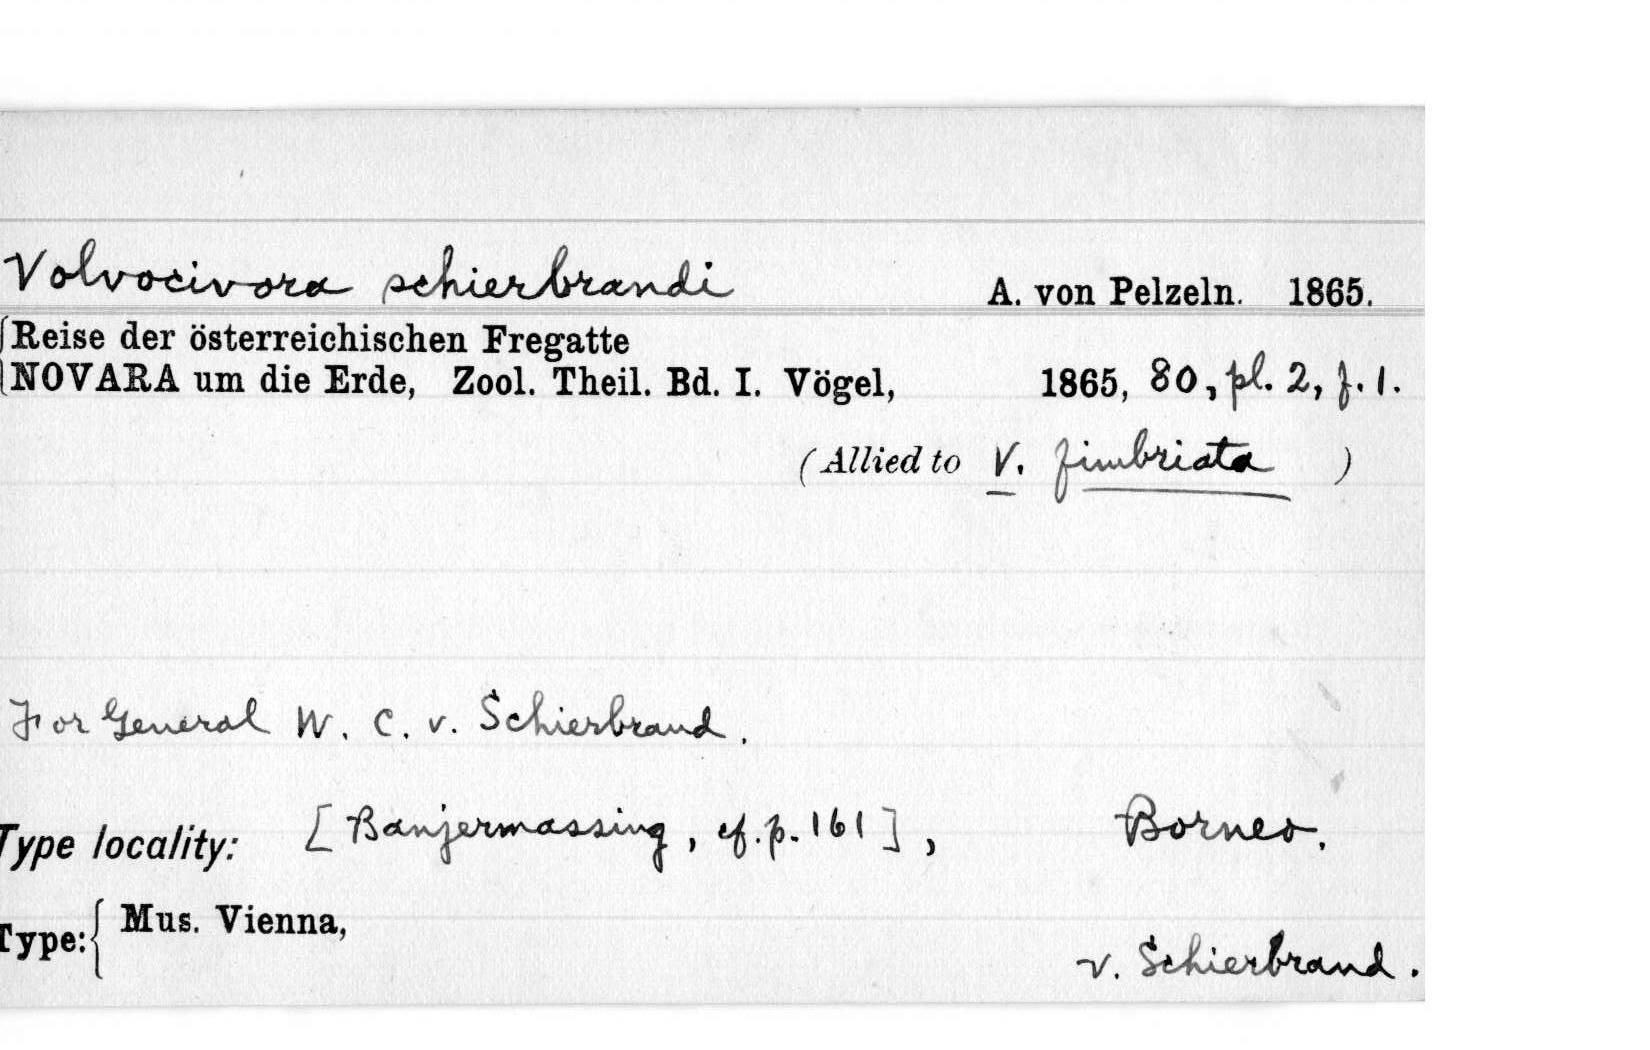 Volvocivora schierbrandi A. von Pelzeln. 1865.
Reise der österreichischen Fregatte
NOVARA um die Erde, Zool. Theil. Bd. I. Vögel, 1865, 80, pl. 2, f. 1.
(Allied to V. fimbriata )
For General W. C. v. Schierbrand.
Type locality: [Banjermassing, cf. p. 161], Borneo.
Type: { Mus. Vienna,
v. Schierbrand.